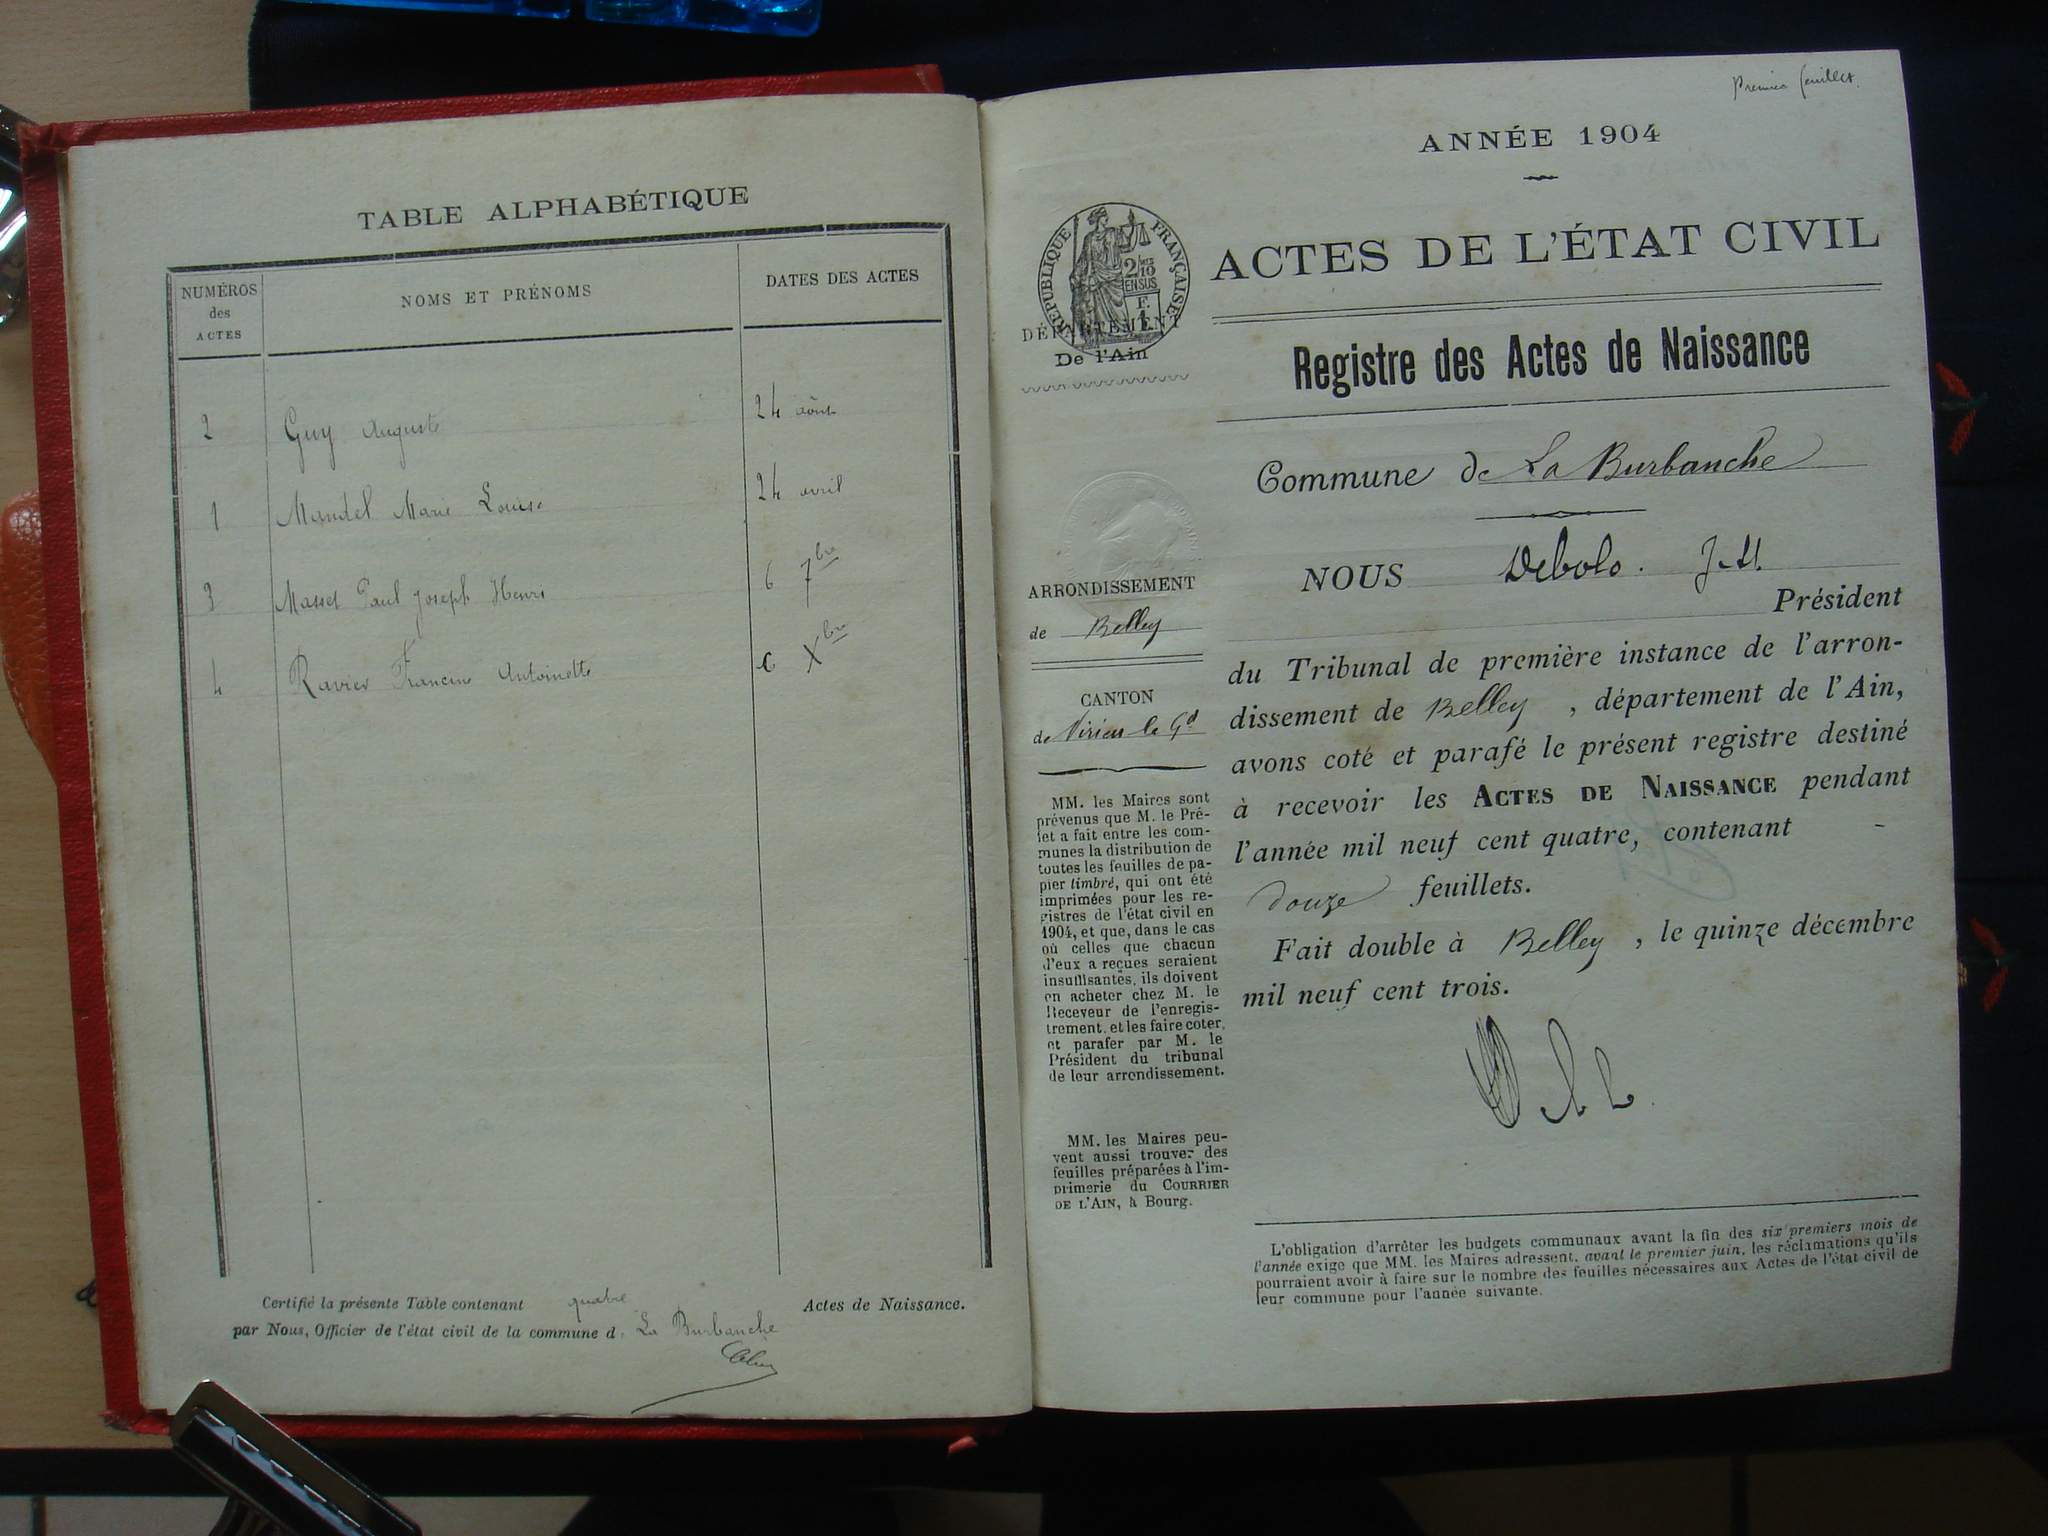 TABLE ALPHABÉTIQUE
NUMÉROS
des
ACTES
NOMS ET PRÉNOMS
DATES DES ACTES
2 Guy Auguste 24 août
1 Mandel Marie Louise 24 avril
3 Masset Paul Joseph Henri 6 7bre
4 Ravier Francine Antoinette 6 Xbre
Certifié la présente Table contenant quatre Actes de Naissance.
par Nous, Officier de l'état civil de la commune d. La Burbanche
Premier feuillet.
ANNÉE 1904
ACTES DE L'ÉTAT CIVIL
RÉPUBLIQUE FRANÇAISE
2/10
EN SUS
DÉPARTEMENT
De l'Ain
Registre des Actes de Naissance
Commune de La Burbanche
NOUS Debolo. J-M.
Président
du Tribunal de première instance de l'arron-
dissement de Belley, département de l'Ain,
avons coté et parafé le présent registre destiné
à recevoir les ACTES DE NAISSANCE pendant
l'année mil neuf cent quatre, contenant -
douze feuillets.
Fait double à Belley, le quinze décembre
mil neuf cent trois.
ARRONDISSEMENT
de Belley
CANTON
de Virieu le Gd
MM. les Maires sont
prévenus que M. le Pré-
fet a fait entre les com-
munes la distribution de
toutes les feuilles de pa-
pier timbré, qui ont été
imprimées pour les re-
gistres de l'état civil en
1904, et que, dans le cas
où celles que chacun
d'eux a reçues seraient
insuffisantes, ils doivent
en acheter chez M. le
Receveur de l'enregis-
trement, et les faire coter,
et parafer par M. le
Président du tribunal
de leur arrondissement.
MM. les Maires peu-
vent aussi trouver des
feuilles préparées à l'im-
primerie du COURRIER
DE L'AIN, à Bourg.
L'obligation d'arrêter les budgets communaux avant la fin des six premiers mois de
l'année exige que MM. les Maires adressent, avant le premier juin, les réclamations qu'ils
pourraient avoir à faire sur le nombre des feuilles nécessaires aux Actes de l'état civil de
leur commune pour l'année suivante.